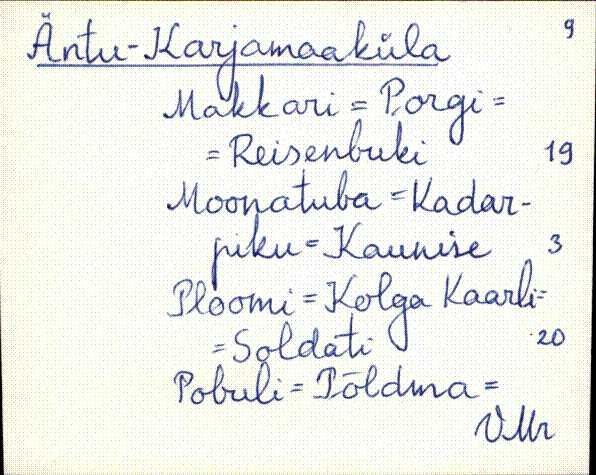 Äntu-Karjamaaküla 9
Makkari = Porgi =
= Reisenbuki 19
Moonatuba = Kadar-
piku = Kaunise 3
Ploomi = Kolga Kaarli =
= Soldati 20
Pobuli = Põldma =
VMr